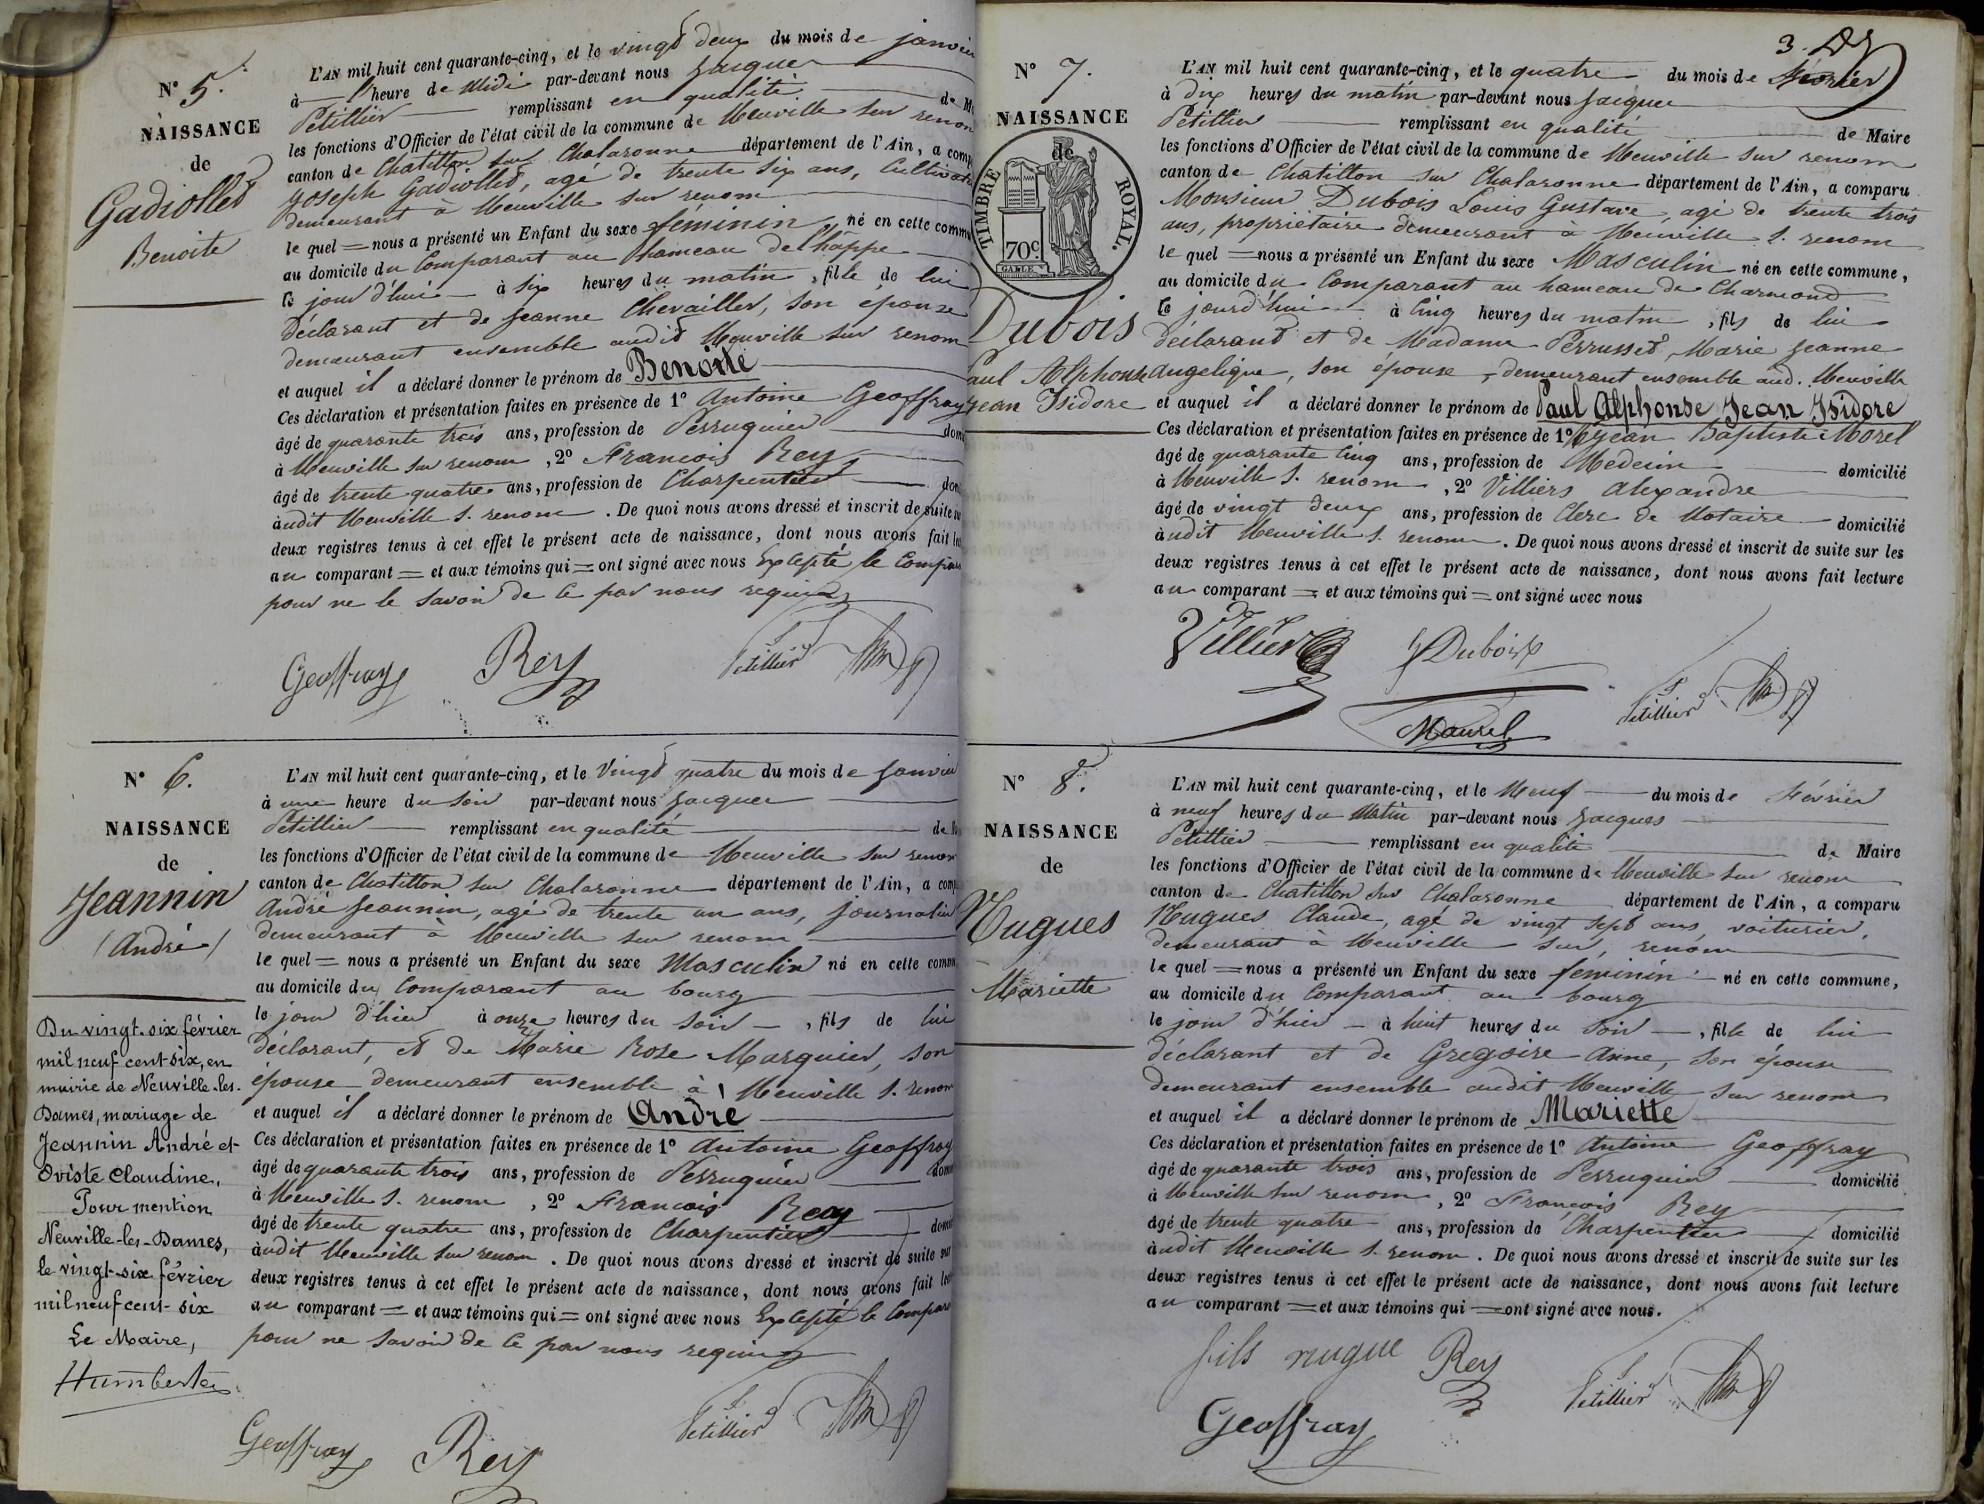 N° 5.
NAISSANCE
de
Gadiollet
Benoite
L'AN mil huit cent quarante-cinq, et le vingt deux du mois de janvier
à heure de Midi par-devant nous Jacques
Petillier remplissant en qualité de M
les fonctions d'Officier de l'état civil de la commune de Neuville sur renom
canton de Chatillon sur Chalaronne département de l'Ain, a comp
Joseph Gadiollet, agé de trente six ans, Cultivat
demeurant à Neuville sur renom
le quel = nous a présenté un Enfant du sexe féminin, né en cette commu
au domicile du Comparant au hameau de l'happe
ce jour d'hui à six heures du matin, fille de lui
déclarant et de Jeanne Chevailler, son épouse
demeurant ensemble audit Neuville sur renom
et auquel il a déclaré donner le prénom de Benoite
Ces déclaration et présentation faites en présence de 1° Antoine Geoffray
âgé de quarante trois ans, profession de Perruquier domi
à Neuville sur renom, 2° François Rey
âgé de trente quatre ans, profession de Charpentier dom
àudit Neuville s. renom. De quoi nous avons dressé et inscrit de suite su
deux registres tenus à cet effet le présent acte de naissance, dont nous avons fait lec
au comparant = et aux témoins qui = ont signé avec nous Excepté le Compara
pour ne le savoir de ce par nous requis
Geoffray Rey Petillier
N° 6.
NAISSANCE
de
Jeannin
(André)
L'AN mil huit cent quarante-cinq, et le vingt quatre du mois de janvier
à une heure du soir par-devant nous Jacques
Petillier remplissant en qualité de M
les fonctions d'Officier de l'état civil de la commune de Neuville sur renom
canton de Chatillon sur Chalaronne département de l'Ain, a comp
André Jeannin, agé de trente un ans, journalier
demeurant à Neuville sur renom
le quel = nous a présenté un Enfant du sexe Masculin né en cette comm
au domicile du Comparant au bourg
le jour d'hier à onze heures du soir, fils de lui
déclarant, et de Marie Rose Marguier, son
épouse demeurant ensemble à Neuville s. renom
et auquel il a déclaré donner le prénom de André
Ces déclaration et présentation faites en présence de 1° Antoine Geoffray
âgé de quarante trois ans, profession de Perruquier domi
à Neuville s. renom, 2° François Rey
âgé de trente quatre ans, profession de Charpentier domi
àudit Neuville sur renom. De quoi nous avons dressé et inscrit de suite sur
deux registres tenus à cet effet le présent acte de naissance, dont nous avons fait lec
au comparant = et aux témoins qui = ont signé avec nous Excepté le Compara
pour ne savoir de ce par nous requis
Geoffray Rey Petillier
Du vingt-six février
mil neuf cent-six, en
mairie de Neuville-les-
Dames, mariage de
Jeannin André et
Oviste Claudine,
Pour mention
Neuville-les-Dames,
le vingt-six février
mil neuf cent-six
Le Maire,
Humbert
3.
N° 7.
NAISSANCE
de
TIMBRE ROYAL.
70c
Dubois
Paul Alphonse
Jean Isidore
L'AN mil huit cent quarante-cinq, et le quatre du mois de Février
à dix heures du matin par-devant nous Jacques
Petillier remplissant en qualité de Maire
les fonctions d'Officier de l'état civil de la commune de Neuville sur renom
canton de Chatillon sur Chalaronne département de l'Ain, a comparu
Monsieur Dubois Louis Gustave, agé de trente trois
ans, propriétaire demeurant à Neuville s. renom
le quel = nous a présenté un Enfant du sexe Masculin né en cette commune,
au domicile du Comparant au hameau de Charmond
ce jourd'hui à cinq heures du matin, fils de lui
déclarant et de Madame Perrusset, Marie Jeanne
Angelique, son épouse, demeurant ensemble aud. Neuville
et auquel il a déclaré donner le prénom de Paul Alphonse Jean Isidore
Ces déclaration et présentation faites en présence de 1° Jean Baptiste Morel
âgé de quarante cinq ans, profession de Médecin domicilié
à Neuville s. renom, 2° Villiers Alexandre
âgé de vingt deux ans, profession de Clerc de Notaire domicilié
àudit Neuville s. renom. De quoi nous avons dressé et inscrit de suite sur les
deux registres tenus à cet effet le présent acte de naissance, dont nous avons fait lecture
au comparant = et aux témoins qui = ont signé avec nous
Villier Dubois
Maurel Petillier
N° 8.
NAISSANCE
de
Nugues
Mariette
L'AN mil huit cent quarante-cinq, et le Neuf du mois de Février
à neuf heures du Matin par-devant nous Jacques
Petillier remplissant en qualité de Maire
les fonctions d'Officier de l'état civil de la commune de Neuville sur renom
canton de Chatillon sur Chalaronne département de l'Ain, a comparu
Nugues Claude, agé de vingt sept ans, voiturier,
demeurant à Neuville sur renom
le quel = nous a présenté un Enfant du sexe féminin né en cette commune,
au domicile du Comparant au bourg
le jour d'hier à huit heures du soir, fille de lui
déclarant et de Gregoire Anne, son épouse
demeurant ensemble audit Neuville sur renom
et auquel il a déclaré donner le prénom de Mariette
Ces déclaration et présentation faites en présence de 1° Antoine Geoffray
âgé de quarante trois ans, profession de Perruquier domicilié
à Neuville sur renom, 2° François Rey
âgé de trente quatre ans, profession de Charpentier domicilié
àudit Neuville s. renom. De quoi nous avons dressé et inscrit de suite sur les
deux registres tenus à cet effet le présent acte de naissance, dont nous avons fait lecture
au comparant = et aux témoins qui = ont signé avec nous.
fils nugue Rey Petillier
Geoffray